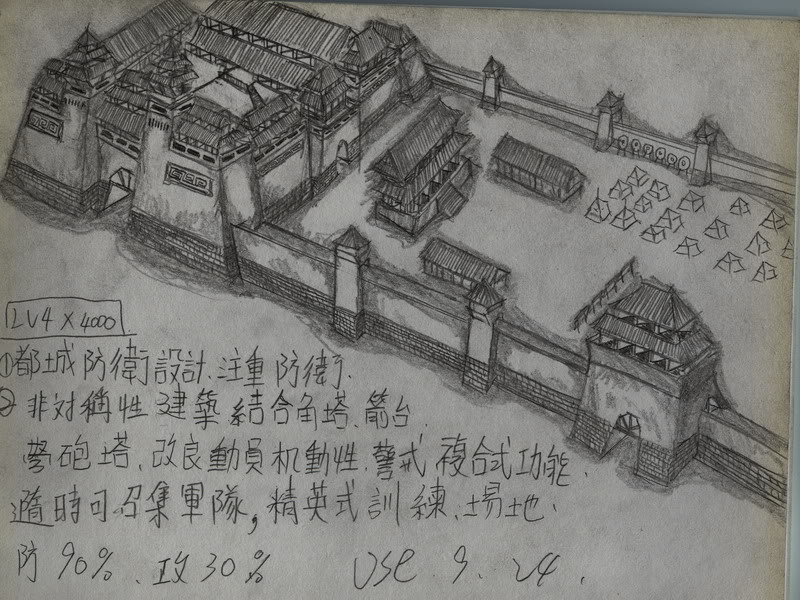 LV4 x 4000
①都城防衛設計.注重防衛.
② 非对稱性建築結合角塔.箭台.
砲塔.改良動員机動性.警戒.複合式功能.
隨時可召集軍隊,精英式訓練.場地.
防90%.攻30% USE.9.24.